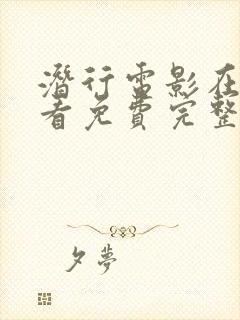 潛行電影在
看免費完整
夕夢